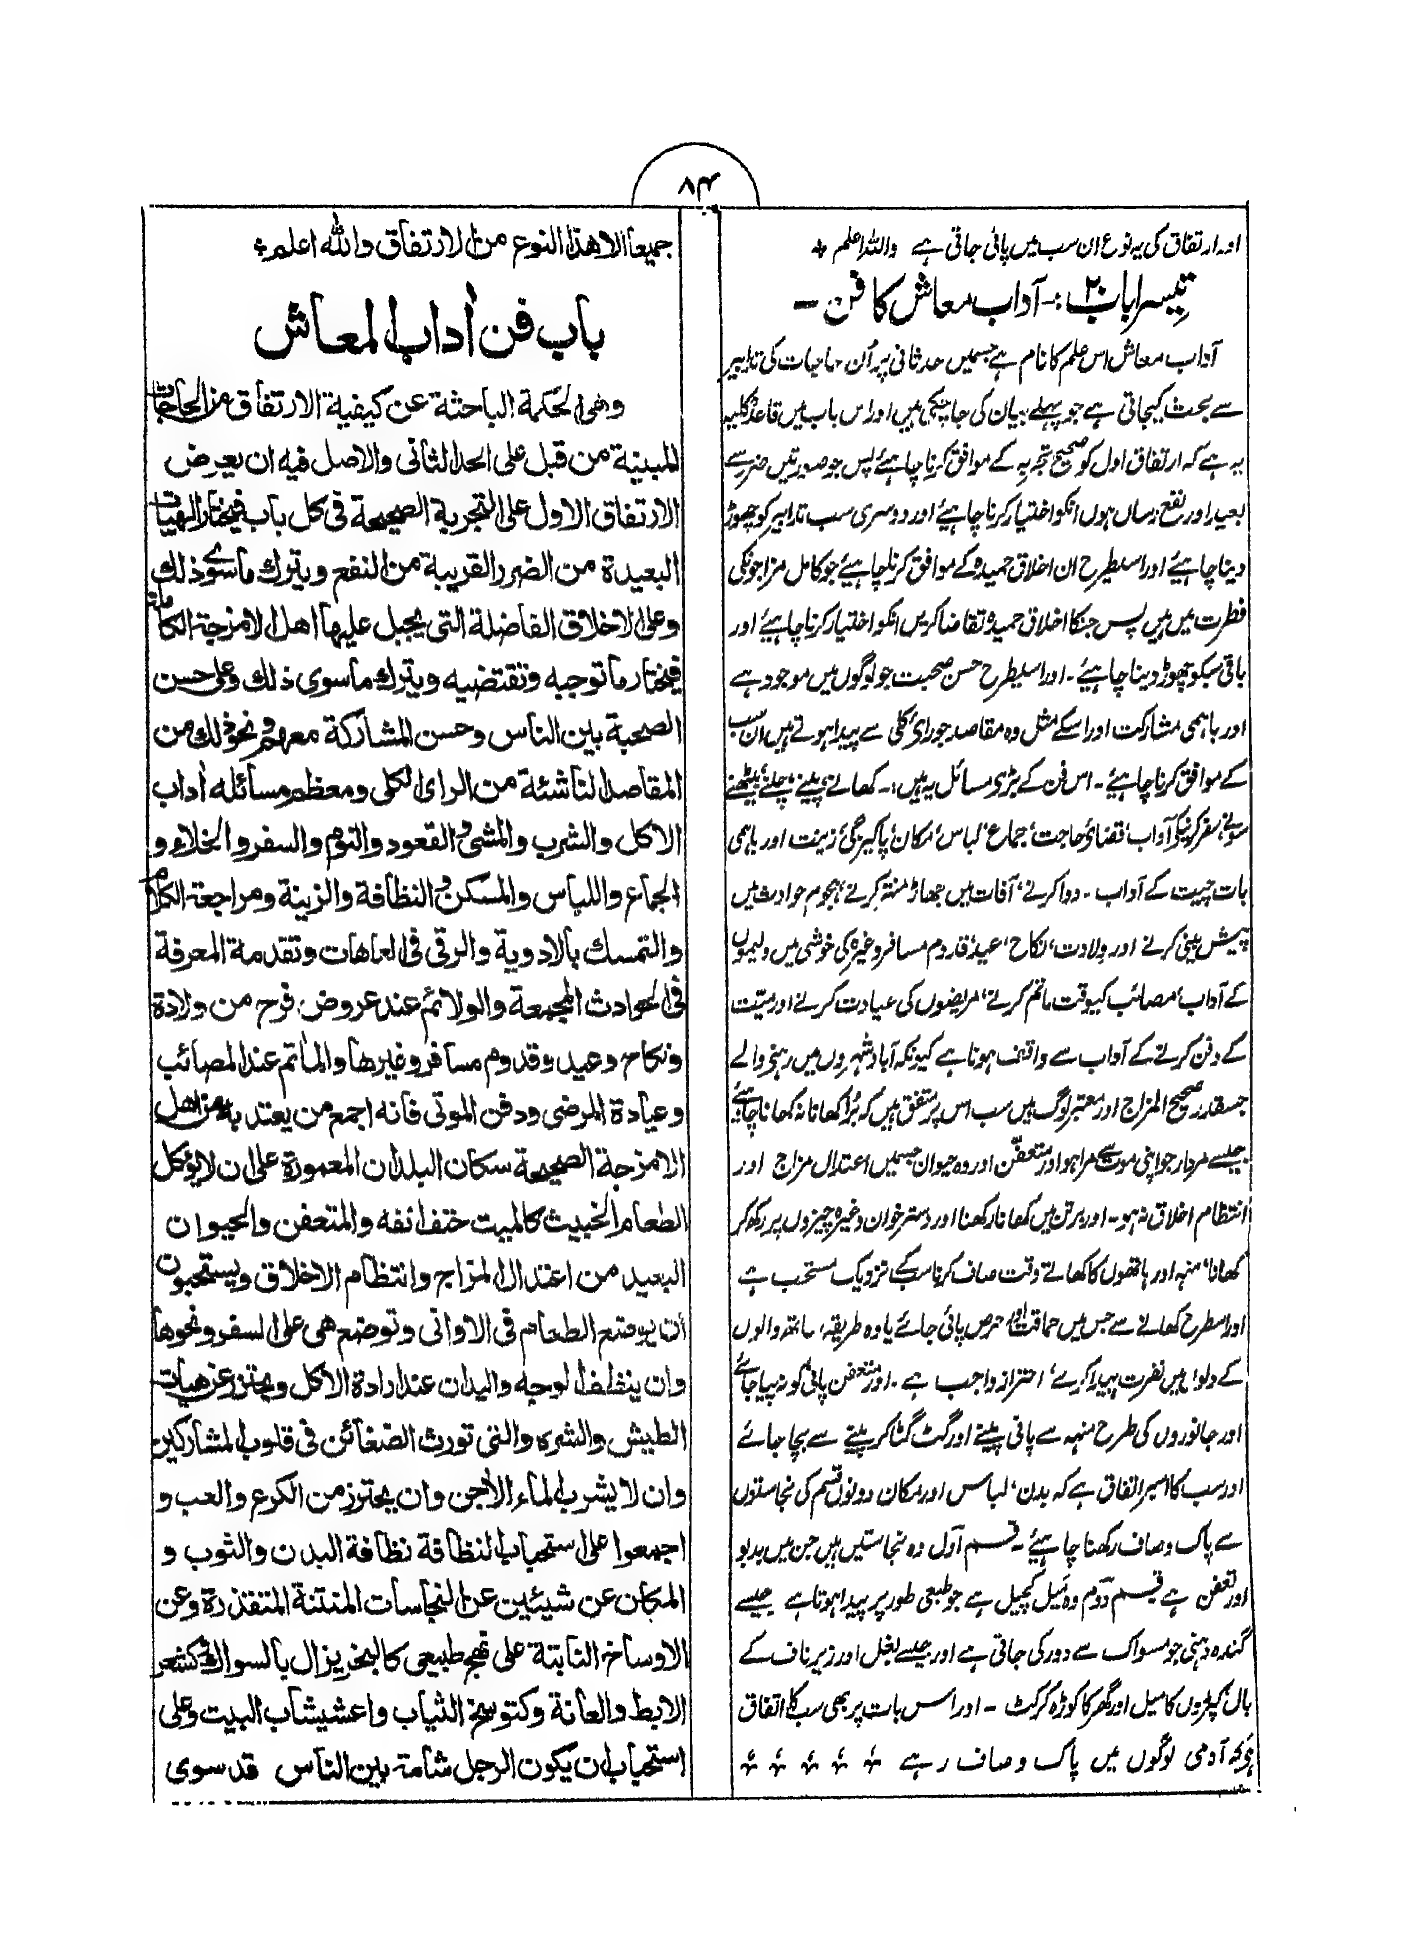 ۸۴
اور ارتفاق کی یہ نوع ان سب میں پائی جاتی ہے واللہ اعلم
تیسرا باب ۲۰:- آداب معاش کا فن -
آداب معاش اس علم کا نام ہے جسمیں حد ثانی پر اُن حاجات کی تدابیر
سے بحث کیجاتی ہے جو پہلے بیان کی جا چکی ہیں اور اس باب میں قاعدہ کلیہ
یہ ہے کہ ارتفاق اول کو صحیح تجربہ کے موافق کرنا چاہئے پس جو صورتیں ضرر سے
بعید اور نفع رساں ہوں انکو اختیار کرنا چاہیئے اور دوسری سب تدابیر کو چھوڑ
دینا چاہیئے اور اسیطرح ان اخلاق حمیدہ کے موافق کرنا چاہیئے جو کامل مزاجونکی
فطرت میں ہیں پس جنکا اخلاق حمیدہ تقاضا کریں انکو اختیار کرنا چاہیئے اور
باقی سبکو چھوڑ دینا چاہیئے۔ اور اسیطرح حسن صحبت جو لوگوں میں موجود ہے
اور باہمی مشارکت اور اسکے مثل وہ مقاصد جو رائ کلی سے پیدا ہوتے ہیں ان سب
کے موافق کرنا چاہیئے۔ اس فن کے بڑی مسائل یہ ہیں:- کھانے، پینے، چلنے، بیٹھنے
سونے، سفر کرنیکے آداب، قضائ حاجت، جماع، لباس، مکان، پاکیزگی، زینت اور باہمی
بات چیت کے آداب۔ دوا کرنے، آفات میں جھاڑ منتر کرنے، ہجوم حوادث میں
پیش بینی کرنے اور ولادت، نکاح، عید، قدوم مسافر وغیرہ کی خوشی میں ولیموں
کے آداب، مصائب کیوقت ماتم کرنے، مریضوں کی عیادت کرنے اور میّت
کے دفن کرنے کے آداب سے واقف ہونا ہے کیونکہ آباد شہروں میں رہنے والے
جسقدر صحیح المزاج اور معتبر لوگ ہیں سب اس پر متفق ہیں کہ بُرا کھانا نہ کھانا چاہئے
جیسے مردار جو اپنی موت سے مرا ہو اور متعفّن اور وہ حیوان جسمیں اعتدال مزاج اور
انتظام اخلاق نہ ہو۔ اور برتن میں کھانا رکھنا اور دسترخوان وغیرہ چیزوں پر رکھ کر
کھانا، منہ اور ہاتھوں کا کھاتے وقت صاف کرنا سبکے نزدیک مستحب ہے
اور اسطرح کھانے سے جس میں حماقت اور حرص پائی جائے یا وہ طریقہ، ساتھ والوں
کے دلوں میں نفرت پیدا کرے، احتراز واجب ہے۔ اور متعفن پانی کو نہ پیا جائے
اور جانوروں کی طرح منہہ سے پانی پینے اور گٹ گٹا کر پینے سے بچا جائے
اور سب کا اسپر اتفاق ہے کہ بدن، لباس اور مکان دونوں قسم کی نجاستوں
سے پاک و صاف رکھنا چاہیئے۔ قسم اوّل وہ نجاستیں ہیں جن میں بدبو
اور تعفن ہے قسم دوّم وہ میل کچیل ہے جو طبعی طور پر پیدا ہوتا ہے جیسے
گندہ دہنی جو مسواک سے دور کی جاتی ہے اور جیسے بغل اور زیر ناف کے
بال، کپڑوں کا میل اور گھر کا کوڑہ کرکٹ۔ اور اس بات پر بھی سب کا اتفاق
ہے کہ آدمی لوگوں میں پاک و صاف رہے
جمیعا الا هذا النوع من الارتفاق والله اعلم
باب فن اداب المعاش
وهى الحكمة الباحثة عن كيفية الارتفاق من الحاجات
المبينة من قبل على الحد الثانى والاصل فيه ان يعرض
الارتفاق الاول على التجربة الصحيحة فى كل باب فيختار الهيات
البعيدة من الضرر القريبة من النفع ويترك ما سوى ذلك
وعلى الاخلاق الفاضلة التى يجبل عليها اهل الامزجة الكاملة
فيختار ما توجبه وتقتضيه ويترك ما سوى ذلك وعلى حسن
الصحبة بين الناس وحسن المشاركة معهم ونحو ذلك من
المقاصد الناشئة من الراى الكلى ومعظم مسائله اداب
الاكل والشرب والمشى والقعود والنوم والسفر والخلاء و
الجماع واللباس والمسكن والنظافة والزينة ومراجعة الكلام
والتمسك بالادوية والرقى فى العاهات وتقدمة المعرفة
فى الحوادث المجمعة والولائم عند عروض فرح من ولادة
ونكاح وعيد وقدوم مسافر وغيرها والمأتم عند المصائب
وعيادة المرضى ودفن الموتى فانه اجمع من يعتد به من اهل
الامزجة الصحيحة سكان البلدان المعمورة على ان لا يؤكل
الطعام الخبيث كالميت حتف انفه والمتعفن والحيوان
البعيد من اعتدال المزاج وانتظام الاخلاق ويستحبون
ان يوضع الطعام فى الاوانى وتوضع هى على السفر ونحوها
وان ينظف الوجه واليدان عند ارادة الاكل ويحترز عن هيات
الطيش والشره والتى تورث الضغائن فى قلوب المشاركين
وان لا يشرب الماء الآجن وان يحترز من الكرع والعب و
اجمعوا على استحباب النظافة نظافة البدن والثوب و
المكان عن شيئين عن النجاسات المنتنة المتقذرة وعن
الاوساخ النابتة على نهج طبيعى كالبخر يزال بالسواك وكشعر
الابط والعانة وكتوسخ الثياب واعشيشاب البيت وعلى
استحباب ان يكون الرجل شامة بين الناس قد سوى